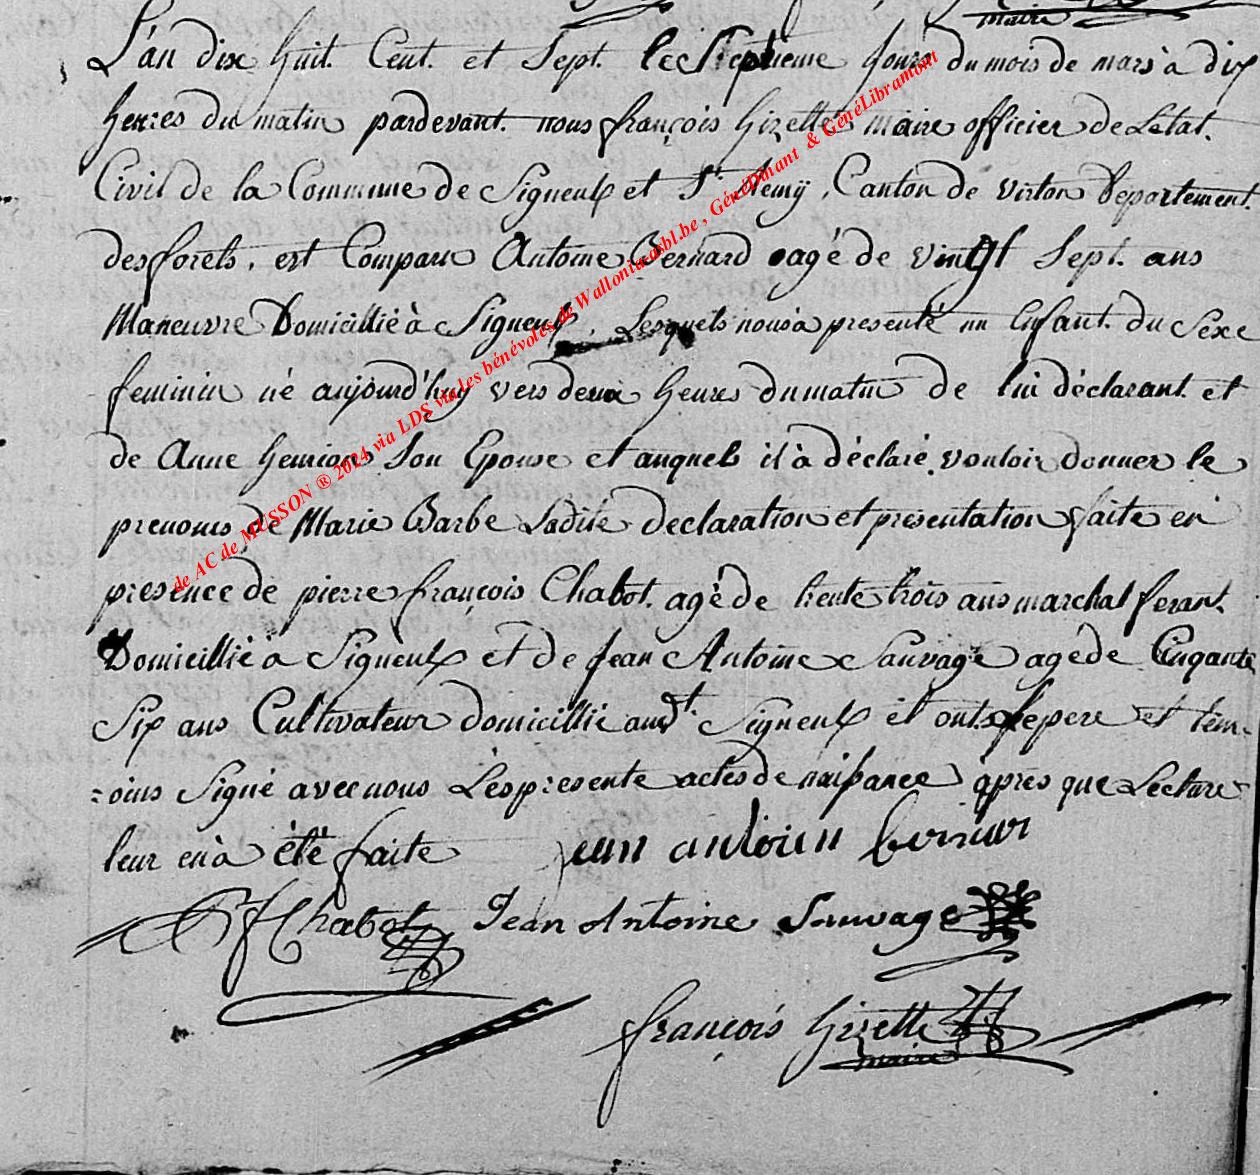 maire
L'an dix huit Cent et Sept le Septieme jours du mois de mars à dix
heures du matin pardevant nous françois Gizette maire officier de Letat
Civil de la Commune de Signeulx et St Remÿ, Canton de virton Departement
des forets, est Comparu Antoine Bernard agé de vingt Sept ans
Maneuvre Domicillié à Signeulx, Lesquels nous à presenté un Enfant du Sexe
feminin né aujourd'huy vers deux heures du matin de lui déclarant et
de Anne henrion Son Epouse et auquels il à déclaré vouloir donner le
prenoms de Marie Barbe Ladite declaration et presentation faite en
presence de pierre françois Chabot agé de trente trois ans marchal ferant
Domicillié a Signeulx et de Jean Antoine Sauvage agé de Cinqante
Six ans Cultivateur domicillié audt Signeulx et ont le pere et tém-
=oins Signé avec nous Les presente actes de naissance après que Lecture
leur en à été faite jean antoien bernar
PF Chabot Jean Antoine Sauvage
françois Gizette
maire
de AC de MUSSON ® 2024 via LDS via les bénévoles de Wallonia-asbl.be , GénéDinant & GénéLibramont